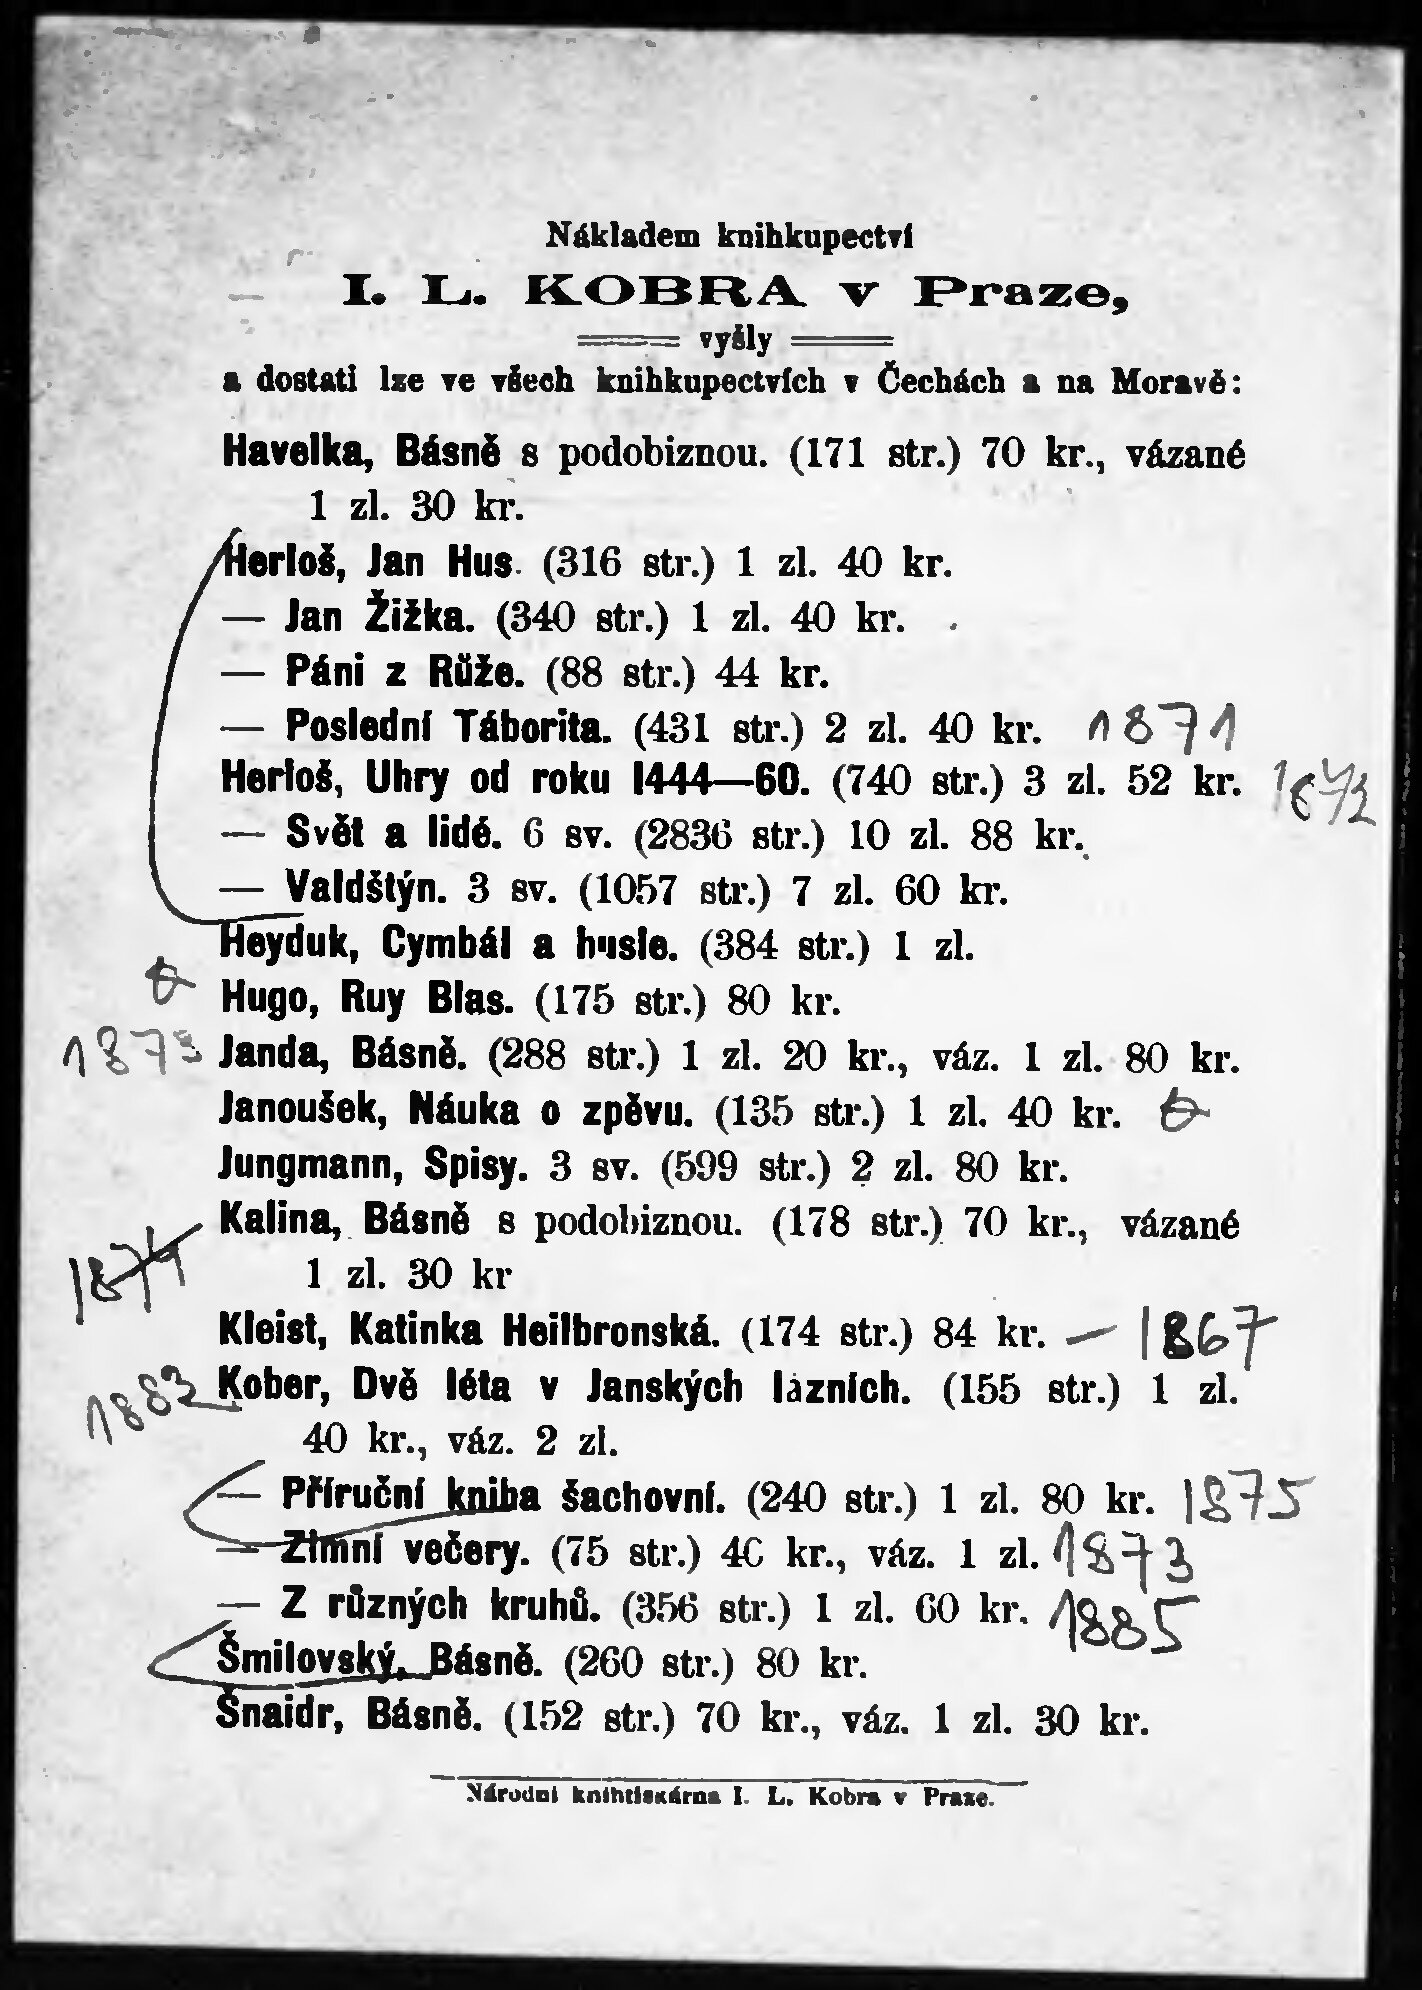 Nákladem knihkupectví
I. L. KOBRA v Praze,
vyšly
a dostati lze ve všech knihkupectvích v Čechách a na Moravě:
Havelka, Básně s podobiznou. (171 str.) 70 kr., vázané
1 zl. 30 kr.
Herloš, Jan Hus. (316 str.) 1 zl. 40 kr.
— Jan Žižka. (340 str.) 1 zl. 40 kr.
— Páni z Růže. (88 str.) 44 kr.
— Poslední Táborita. (431 str.) 2 zl. 40 kr. 1871
Herloš, Uhry od roku 1444—60. (740 str.) 3 zl. 52 kr.
— Svět a lidé. 6 sv. (2836 str.) 10 zl. 88 kr.
— Valdštýn. 3 sv. (1057 str.) 7 zl. 60 kr.
Heyduk, Cymbál a husle. (384 str.) 1 zl.
Hugo, Ruy Blas. (175 str.) 80 kr.
Janda, Básně. (288 str.) 1 zl. 20 kr., váz. 1 zl. 80 kr.
Janoušek, Náuka o zpěvu. (135 str.) 1 zl. 40 kr.
Jungmann, Spisy. 3 sv. (599 str.) 2 zl. 80 kr.
Kalina, Básně s podobiznou. (178 str.) 70 kr., vázané
1874 1 zl. 30 kr
Kleist, Katinka Heilbronská. (174 str.) 84 kr. — 1867
1882 Kober, Dvě léta v Janských lázních. (155 str.) 1 zl.
40 kr., váz. 2 zl.
— Příruční kniha šachovní. (240 str.) 1 zl. 80 kr. 1875
— Zimní večery. (75 str.) 40 kr., váz. 1 zl. 1873
— Z různých kruhů. (356 str.) 1 zl. 60 kr. 1885
Šmilovský, Básně. (260 str.) 80 kr.
Šnaidr, Básně. (152 str.) 70 kr., váz. 1 zl. 30 kr.
Národní knihtiskárna I. L. Kobra v Praze.